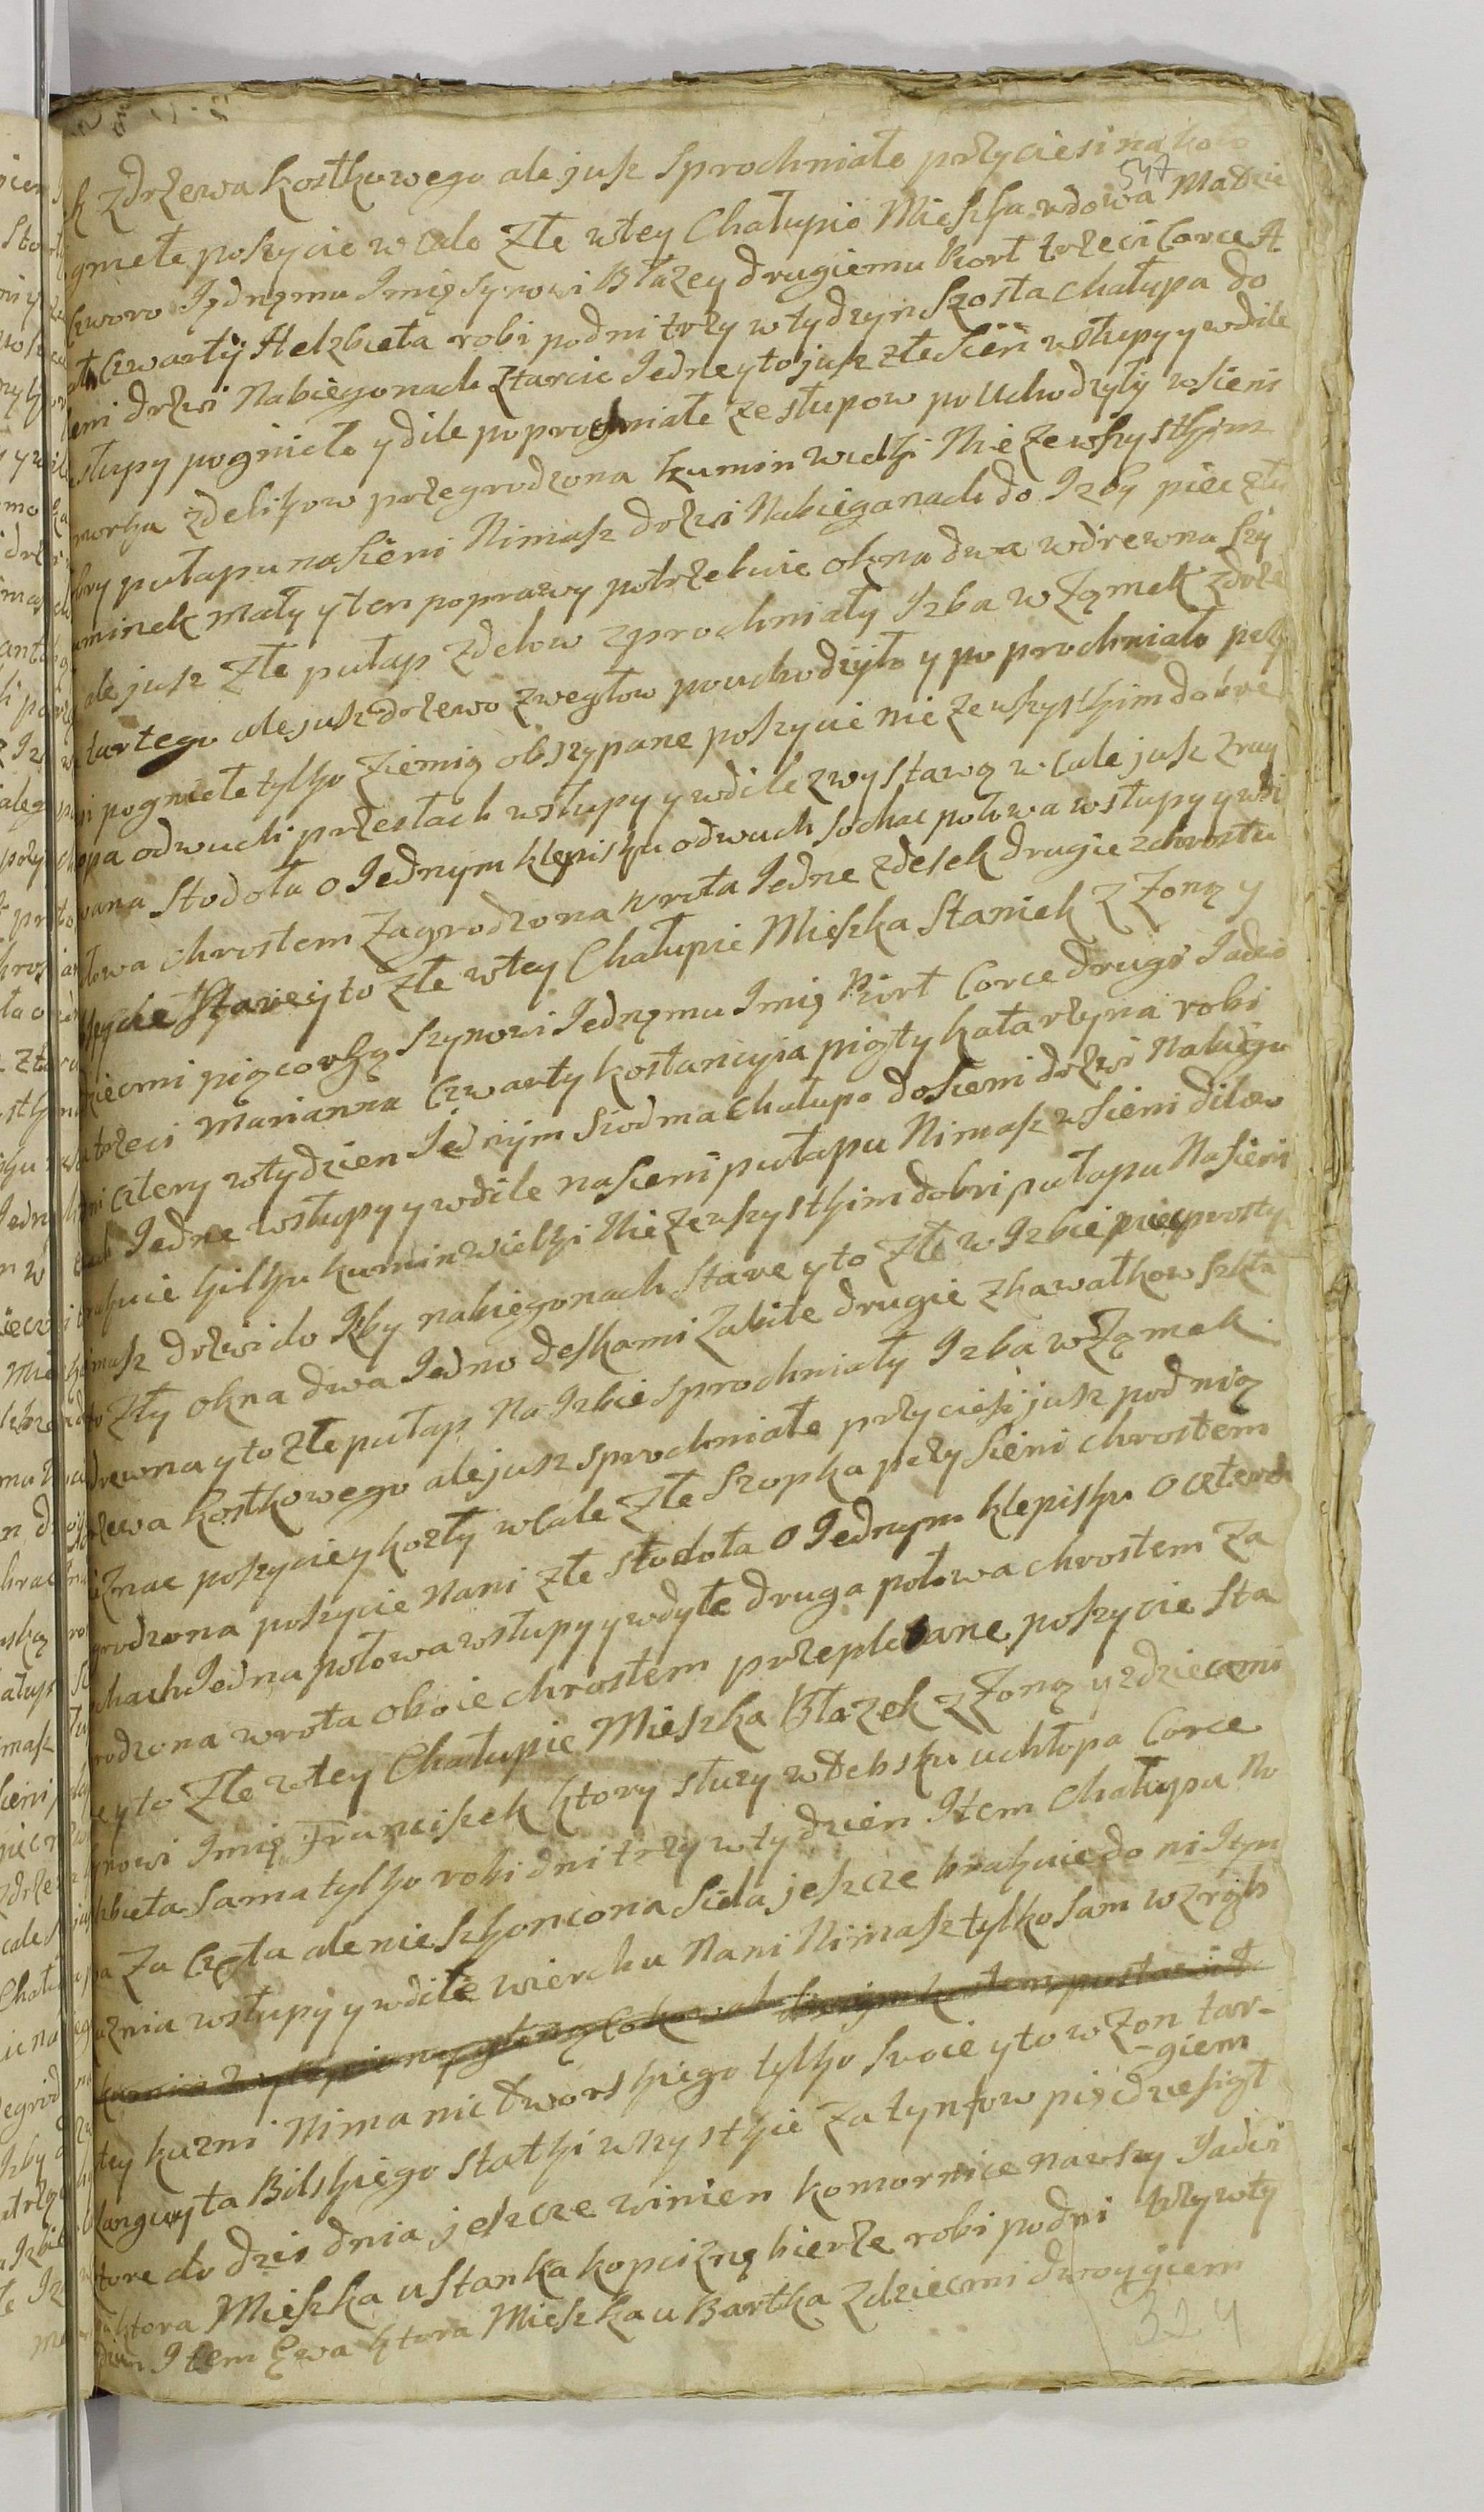 k zdrzewa kostkowego ale jusz sprochniałe przyciesi na koło
517
gniełe poszycie w cale złe wtey Chałupie Mieszka wdowa Ma dzie
czworo Jędnęmu Imię Synowi Błazey drugiemu Bort trzeci Corce A
Czwarty Helzbieta robi podni trzy w tydzyn Szosta chałupa do
ieni drzwi Nabiegonach ztarcic Jedne yto jusz złe Sień wstupy y wdile
słupy pognieło y dile poprochniałe ze słupow po Uchodzyły wsieni
morka zdelikow przegrodzona kumin wielki Nie ze wszystkim
bry pułapu na sieni Nimasz drzwi Nabieganach do Izby piec zły
uminek mały y ten poprawy potrzebuie okna dwa wdrewna Szy
ale jusz złe pułap zdelow zprochniały Izba w Zamek zdrze
tartego ale jusz drzewo zwegłow pouchodzyło y po prochniało przy
i pogniełe tylko ziemią obsypane poszycie nie ze wszystkim dobre
opa odwuch przesłach wstupy y wdile zwystawą w cale jusz zruy
wana Stodoła o Jednym klepisku odwuch sochac połowa wstupy y wdi
łowa chrostem zagrodzona wrota Jedne zdesek drugie zchrostu
szycie Stare yto złe wtey Chałupie Mieszka Staniek z Zoną y
dziecmi pięcorgą Szynowi Jednęmu Imię Bort Corce drugi Jadwi
trzeci Marianna Czwarty kostancyia piąty katarzyna robi
ni cztery wtydzien Jednym Siodma Chałupa do sieni drzwi Nabiego
nach Jedne wstupy y wdile na sieni pułapu Nimasz wsieni dilow
rakuie kilku kumin wielki Nie ze wszystkim dobri pułapu Na sieni
imasz drzwi do Izby nabiegonach Stare y to złe w Izbie piec prosty
to zły okna dwa Jedno deskami zabite drugie zkawałkow szkła
drewna y to złe pułap Na Izbie sprochniały Izba w Zamek
rzewa kostkowego ale jusz sprochniałe przyciesi jusz pod nią
znac poszycie y kozły w cale złe Szopka przy sieni chrostem
grodzona poszycie Nani złe stodoła o Jednym klepisku o cztere
chach Jedna połowa wstupy y wdyłe druga połowa chrostem za
rodzona wrota oboie chrostem przeplatane poszycie sta
e yto złe wtey Chałupie Mieszka Błazek z Zoną y zdziecmi
ynowi Imię Franciszek ktory słuzy wdebsku uchłopa Corce
zbieta Sama tylko robi dni trzy w tydzien Item Chałupa No
a Za Częta ale nie skoncona Siela jeszcze brakuie do ni Item
uznia wstupy y wdile wierchu Nani Nimasz tylko sam wzrąb
tey kuzni Nima nic dworskiego tylko swoie yto w zon tar-
-giem
Langwyta Bilskiego Statki wszystkie za tynfow pięcdziesiąt
tore do dzis dnia jeszcze winien komornice Nawszy Jadwi
ktora Mieszka u Stanka kopciznę bierze robi podni trzy wty
dzien Item Ewa ktora Mieszka u Bartka zdziecmi dwoygiem
324